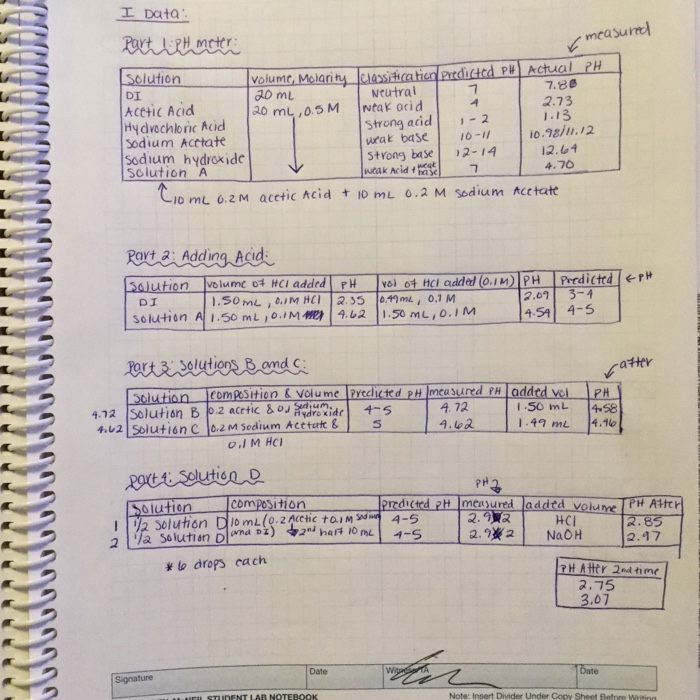 I Data:
Part 1: pH meter:
measured
Solution | Volume, Molarity | Classification | Predicted pH | Actual pH
DI | 20 mL | Neutral | 7 | 7.88
Acetic Acid | 20 mL, 0.5 M | Weak acid | 4 | 2.73
Hydrochloric Acid | Strong acid | 1-2 | 1.13
Sodium Acetate | weak base | 10-11 | 10.98/11.12
Sodium hydroxide | Strong base | 12-14 | 12.64
Solution A | Weak Acid + weak base | 7 | 4.70
10 mL 0.2 M acetic Acid + 10 mL 0.2 M Sodium Acetate
Part 2: Adding Acid:
Solution | Volume of HCl added | pH | Vol of HCl added (0.1M) | pH | Predicted ← pH
DI | 1.50 mL, 0.1M HCl | 2.35 | 0.49 mL, 0.1 M | 2.09 | 3-4
Solution A | 1.50 mL, 0.1M | 4.62 | 1.50 mL, 0.1 M | 4.54 | 4-5
Part 3: Solutions B and C:
after
Solution | Composition & Volume | Predicted pH | measured pH | added vol | pH
4.72 Solution B | 0.2 acetic & 0.1 Sodium Hydroxide | 4-5 | 4.72 | 1.50 mL | 4.58
4.62 Solution C | 0.2 M Sodium Acetate & | 5 | 4.62 | 1.49 mL | 4.46
0.1 M HCl
Part 4: Solution D
pH
Solution | composition | Predicted pH | measured | added volume | pH After
1 1/2 Solution D | 10 mL (0.2 Acetic + 0.1M Sodium | 4-5 | 2.92 | HCl | 2.85
2 1/2 Solution D | and DI) 2nd half 10 mL | 4-5 | 2.92 | NaOH | 2.97
* 6 drops each
pH After 2nd time
2.75
3.07
Signature Date Witness/TA Date
STUDENT LAB NOTEBOOK Note: Insert Divider Under Copy Sheet Before Writing